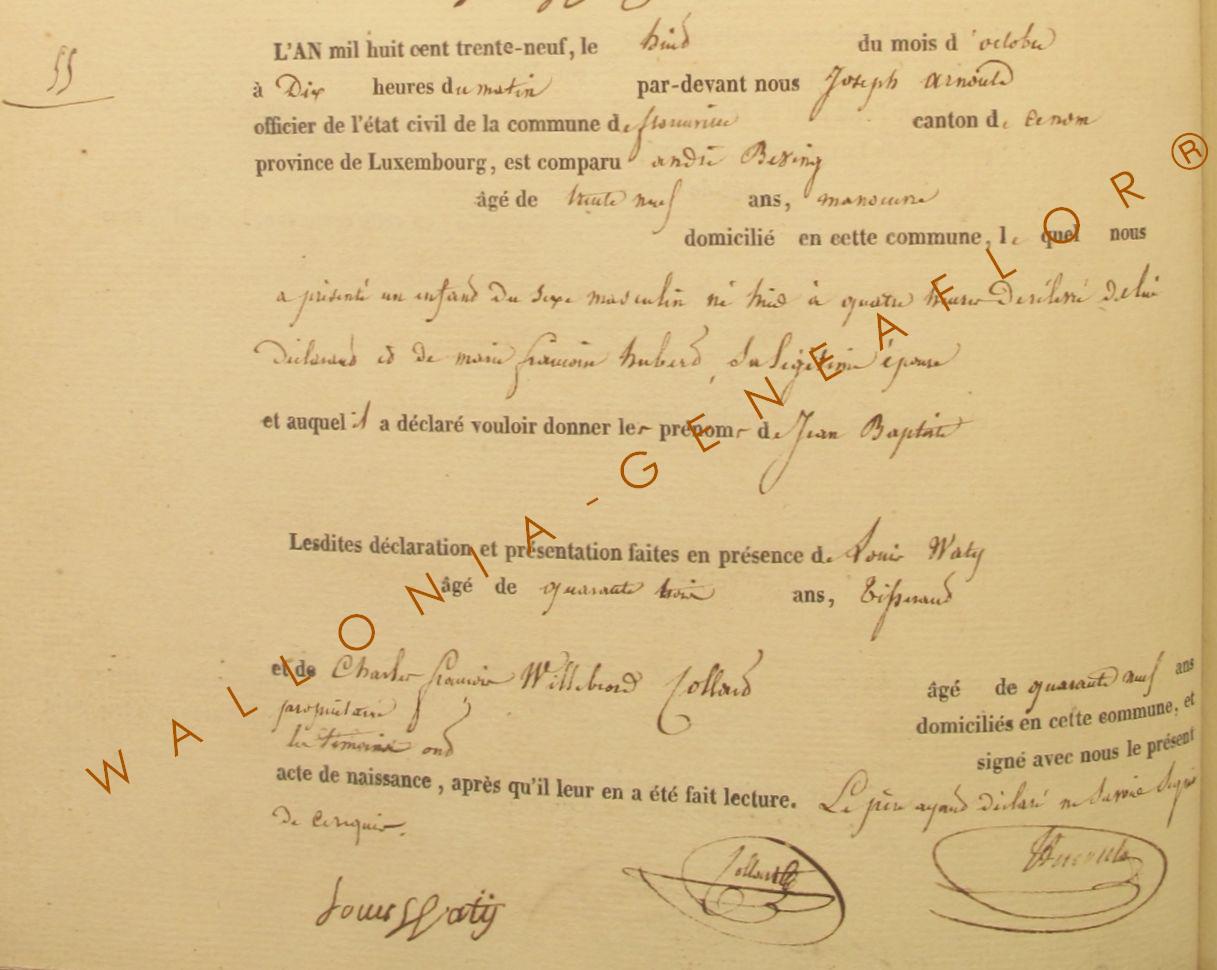 55
L'AN mil huit cent trente-neuf, le huit du mois d'octobre
à Dix heures du matin par-devant nous Joseph Arnould
officier de l'état civil de la commune de canton de
province de Luxembourg, est comparu andré Bexing
âgé de trente neuf ans, manoeuvre
domicilié en cette commune, lequel nous
a présenté un enfant du sexe masculin né à quatre heures de lui
Déclarant et de marie françoise hubert, Sa légitime épouse
et auquel il a déclaré vouloir donner les prénoms de Jean Baptiste
Lesdites déclaration et présentation faites en présence de Louis Waty
âgé de quarante trois ans, Tisserand
et de Charles françois Willebrord Collard âgé de quarante neuf ans
propriétaire domiciliés en cette commune, et
les témoins ont signé avec nous le présent
acte de naissance, après qu'il leur en a été fait lecture. Le père ayant déclaré ne Savoir Signer
De ce requis.
Louis Waty Collard Arnould
WALLONIA-GENEAFLOR®